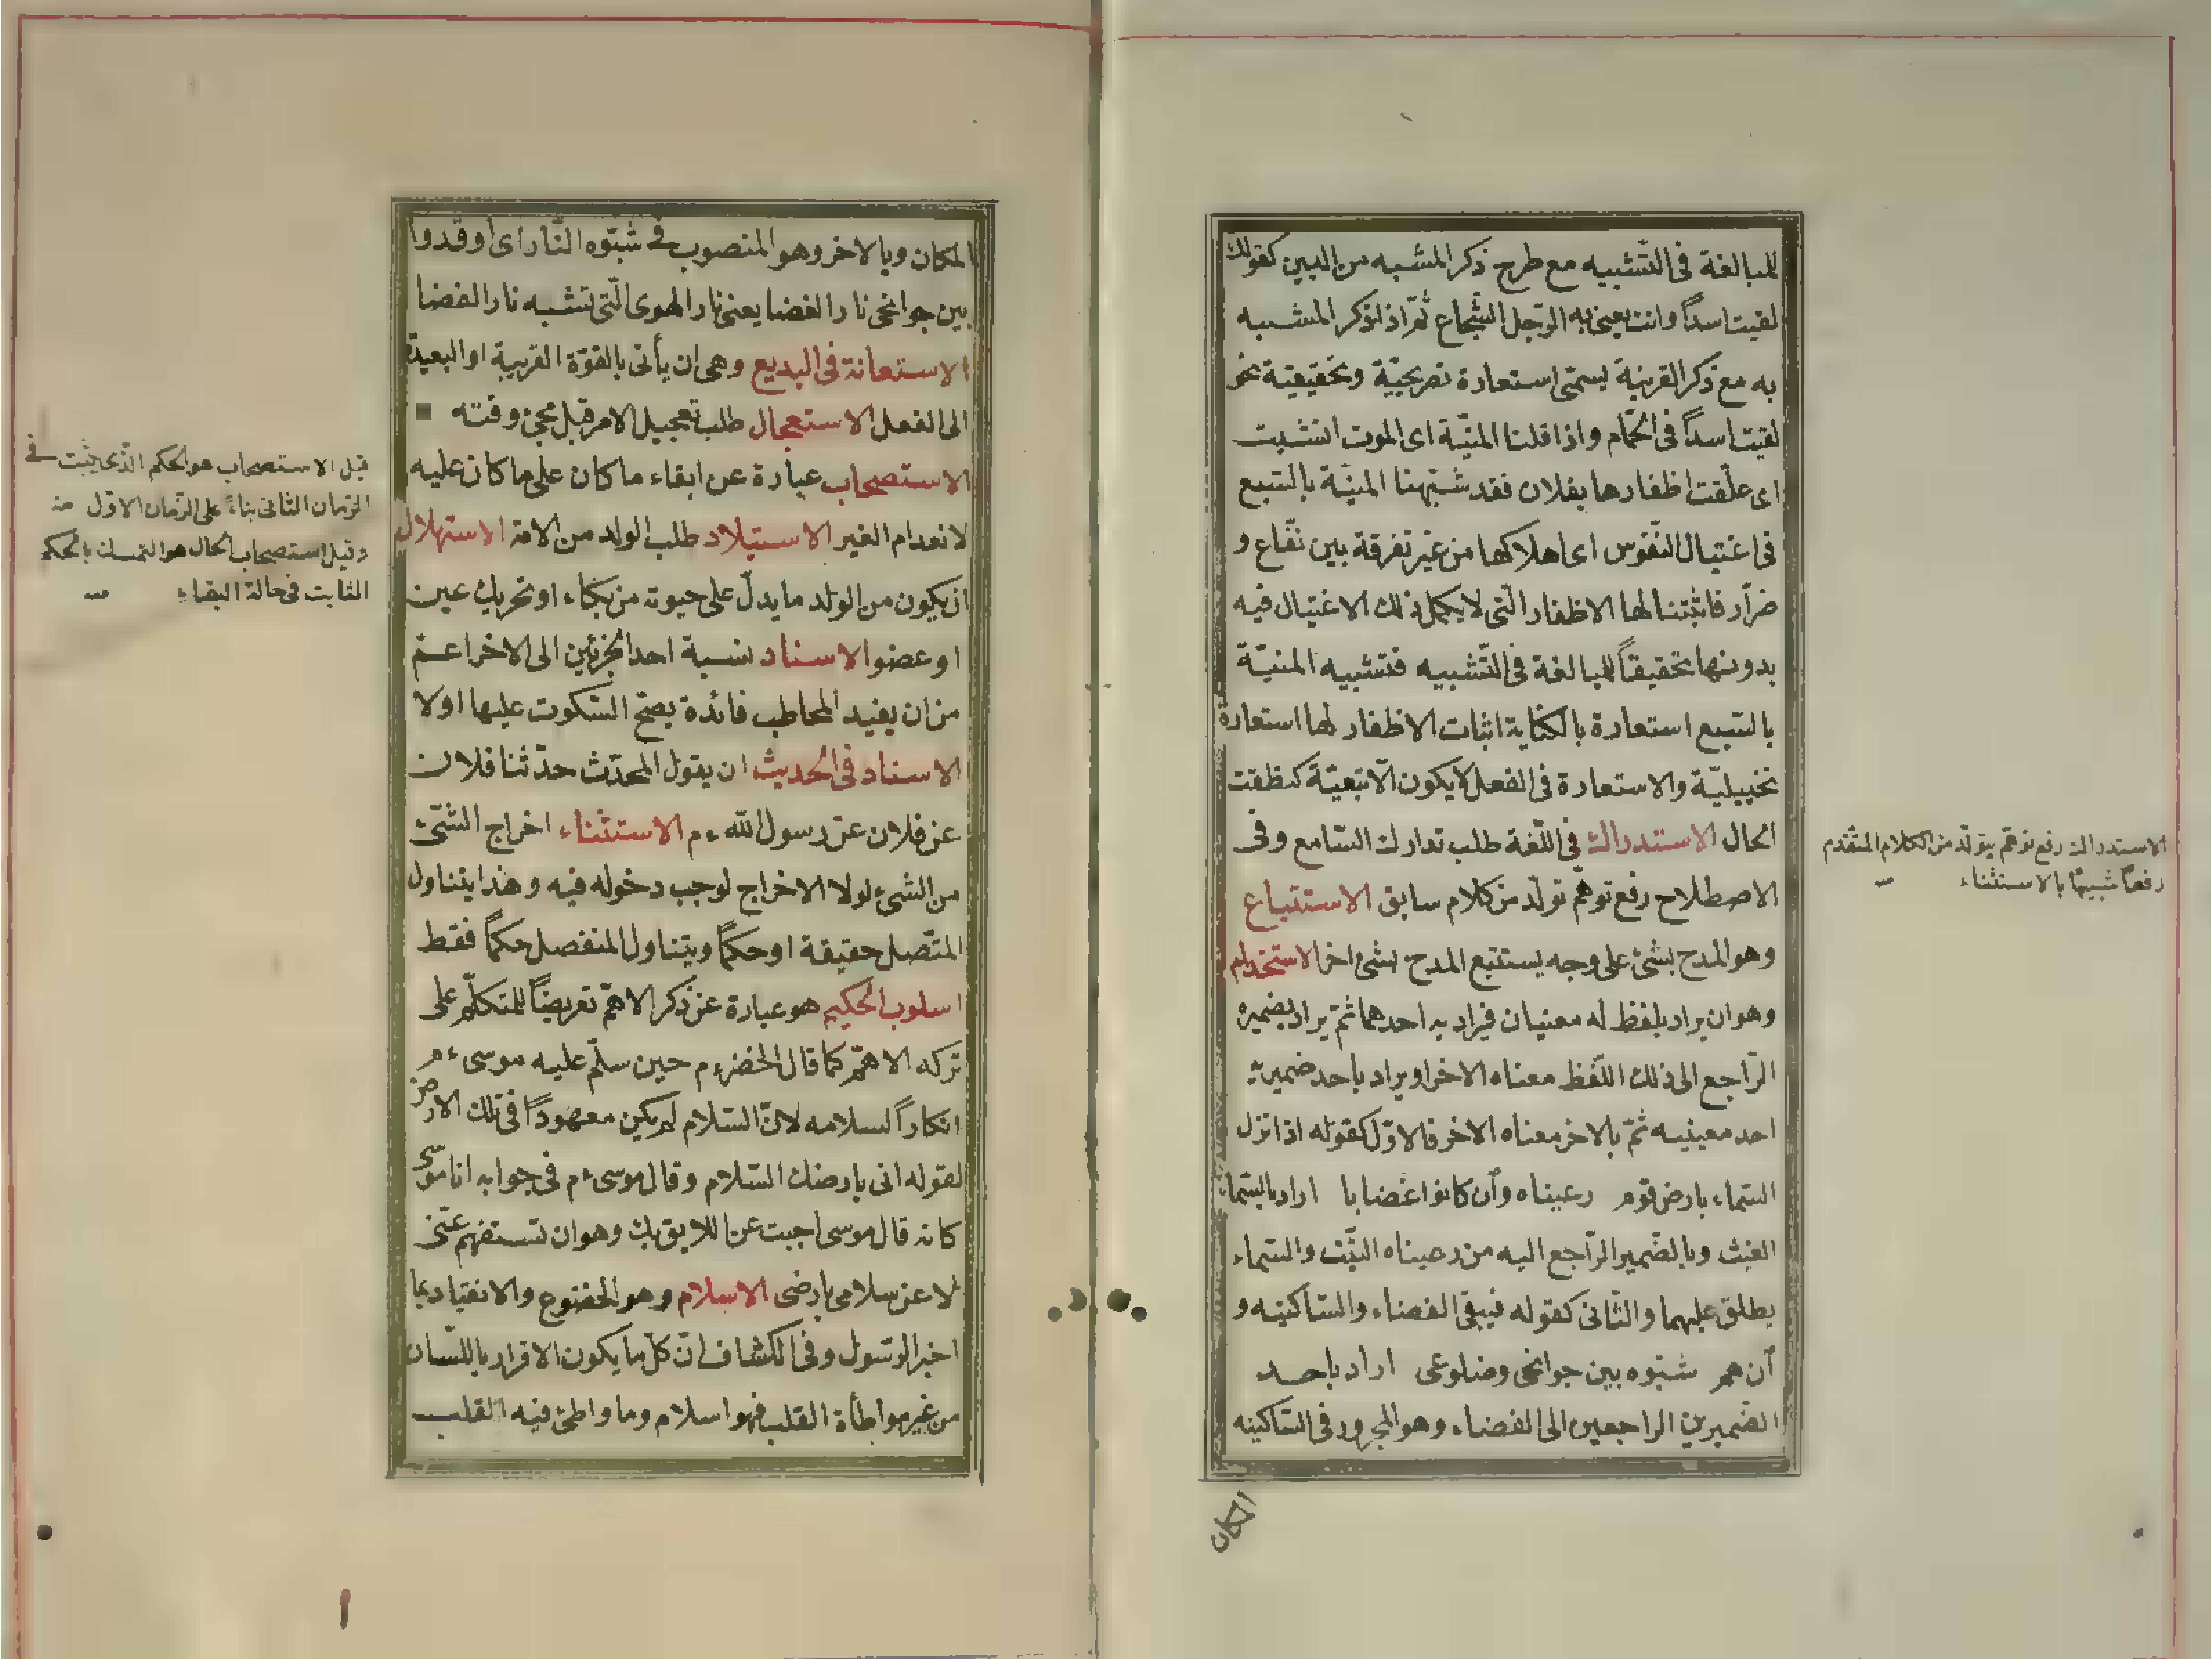 للمبالغة فى التّشبيه مع طرح ذكر المشبه من البين كقولك
لقيت اسداً وانت يعنى به الرّجل الشّجاع ثمّ اذا ذكر المشبه
به مع ذكر القرينة يسمّى استعارة تصريحيّة وتحقيقيّة نحو
لقيت اسداً فى الحمّام واذا قلنا المنيّة اى الموت انشبت
اى علّقت اظفارها بفلان فقد شبّهنا المنيّة بالسّبع
فى اغتيال النّفوس اى اهلاكها من غير تفرقة بين نفّاع و
ضرّار فاثبتنا لها الاظفار الّتى لا يكمل ذلك الاغتيال فيه
بدونها تحقيقاً للمبالغة فى التّشبيه فتشبيه المنيّة
بالسّبع استعارة بالكناية اثبات الاظفار لها استعارة
تخييليّة والاستعارة فى الفعل لا يكون الّا تبعيّة كنطقت
الحال الاستدراك فى اللّغة طلب تدارك السّامع وفى
الاصطلاح رفع توهّم تولّد من كلام سابق الاستتباع
وهو المدح بشئ على وجه يستتبع المدح بشئ اخر الاستخدام
وهو ان يراد بلفظ له معنيان فيراد به احدهما ثمّ يراد بضميره
الرّاجع الى ذلك اللّفظ معناه الاخر او يراد باحد ضميريه
احد معينيه ثمّ بالاخر معناه الاخر فالاوّل كقوله اذا نزل
السّماء بارض قوم رعيناه وأن كانوا غضابا اراد بالسّماء
الغيث وبالضّمير الرّاجع اليه من رعيناه النّبت والسّماء
يطلق عليهما والثّانى كقوله فيبقى الغضاء والسّاكنيه و
أن هم شبّوه بين جوانحى وضلوعى اراد باحد
الضّميرين الراجعين الى الغضاء وهو المجرور فى السّاكنيه
المكان
الاستدراك رفع توهّم يتولّد من الكلام المتقدم
رفعاً شبيهاً بالاستثناء
المكان وبالاخر وهو المنصوب فى شبّوه النّار اى اوقدوا
بين جوانحى نار الغضا يعنى نار الهوى الّتى تشبه نار الغضا
الاستعانة فى البديع وهى ان يأتى بالقوّة القريبة او البعيدة
الى الفعل الاستعجال طلب تعجيل الامر قبل مجئ وقته
الاستصحاب عبارة عن ابقاء ما كان على ما كان عليه
لانعدام الغير الاستيلاد طلب الولد من الامة الاستهلال
ان يكون من الولد ما يدلّ على حيوته من بكاء او تحريك عين
او عضو الاسناد نسبة احد الجزئين الى الاخر اعمّ
من ان يفيد المخاطب فائدة يصحّ السّكوت عليها او لا
الاسناد فى الحديث ان يقول المحدّث حدّثنا فلان
عن فلان عن رسول اللّه ءم الاستثناء اخراج الشّئ
من الشئ لولا الاخراج لوجب دخوله فيه وهذا يتناول
المتّصل حقيقة او حكماً ويتناول المنفصل حكماً فقط
اسلوب الحكيم هو عبارة عن ذكر الاهمّ تعريضاً للمتكلّم على
تركه الاهمّ كما قال الخضر ءم حين سلّم عليه موسى ءم
انكاراً لسلامه لانّ السّلام لم يكن معهوداً فى تلك الارض
لقوله انى بارضك السّلام وقال موسى ءم فى جوابه انا موسى
كانه قال موسى اجبت عن اللايق بك وهو ان تستفهم عنّى
لا عن سلامى بارضى الاسلام وهو الخضوع والانقياد بما
اخبر الرّسول وفى الكشّاف انّ كلّ ما يكون الاقرار باللّسان
من غير مواطأة القلب فهو اسلام وما واطئ فيه القلب
قيل الاستصحاب هو الحكم الّذى يثبت فى
الزمان الثانى بناءً على الزّمان الاوّل منه
وقيل استصحاب الحال هو التمسك بالحكم
الثابت فى حالة البقاء